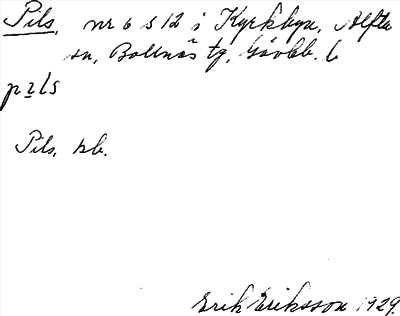 Pils, nr 6 s 12 i Kyrkbyn, Alfta
sn, Bollnäs tg, Gävlb. l
pils
Pils, kb.
Erik Eriksson 1929.